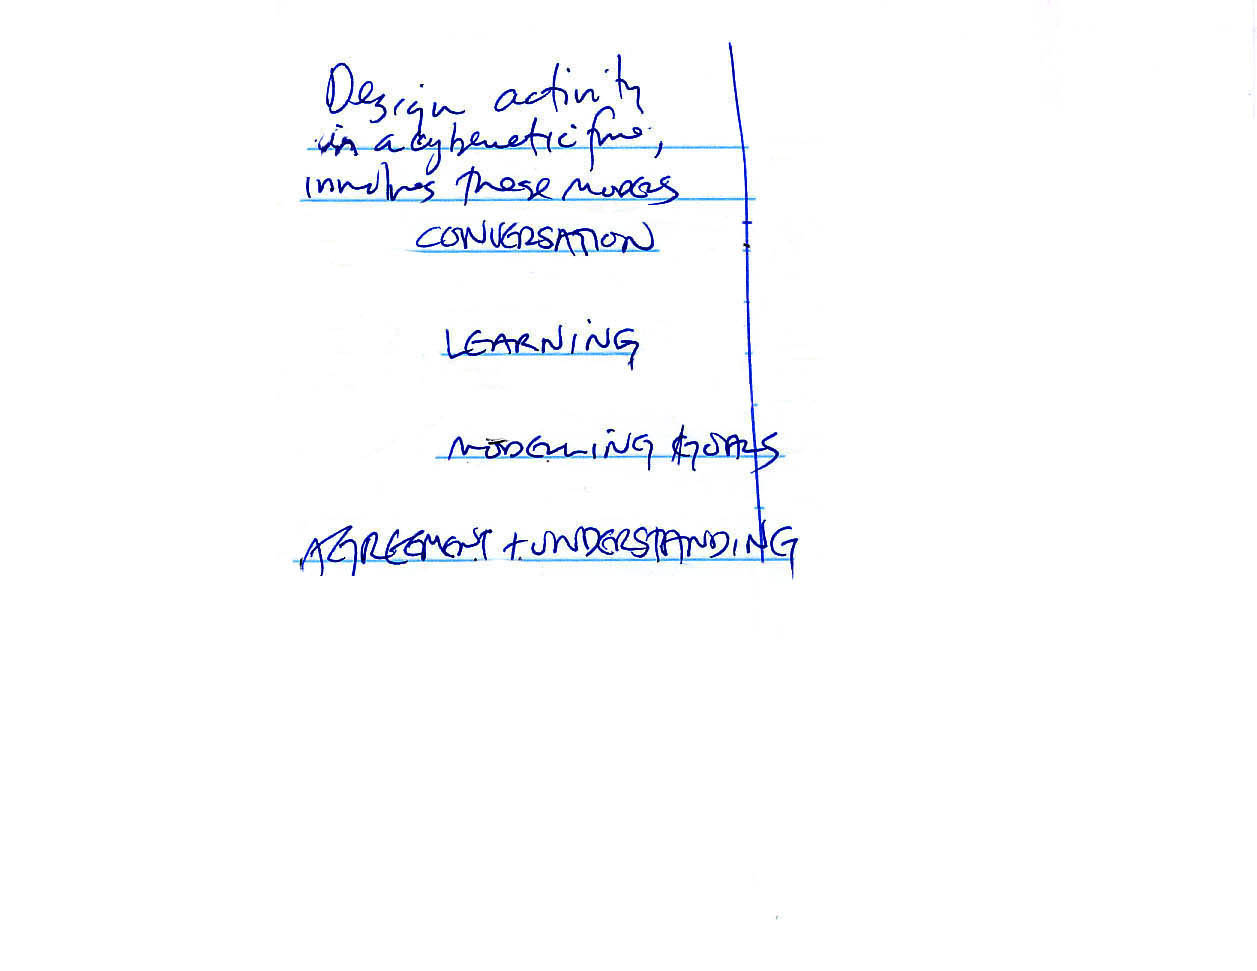 Design activity
in a cybernetic
involves these modes
CONVERSATION
LEARNING
MODELLING GOALS
AGREEMENT + UNDERSTANDING